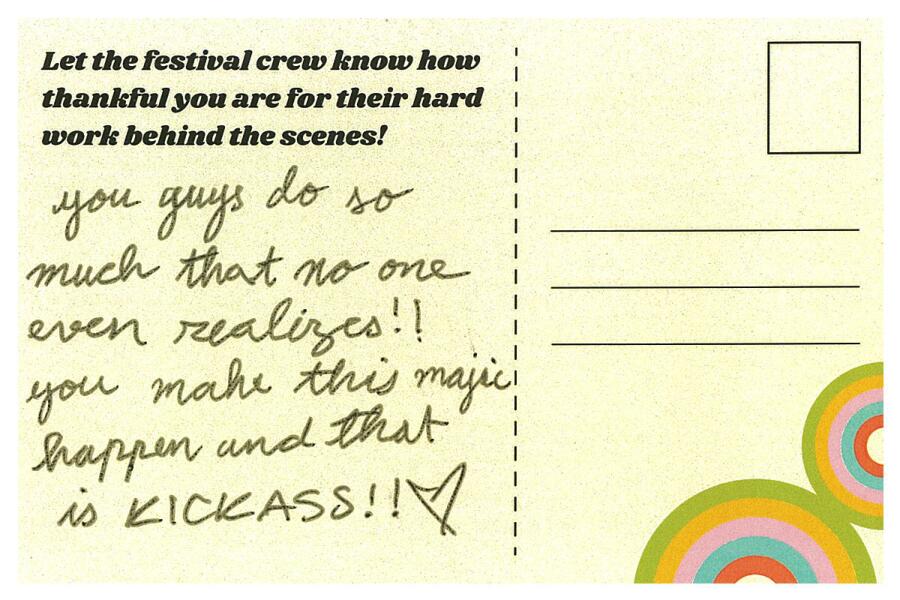 Let the festival crew know how
thankful you are for their hard
work behind the scenes!
you guys do so
much that no one
even realizes!!
you make this majic
happen and that
is KICKASS!!♡